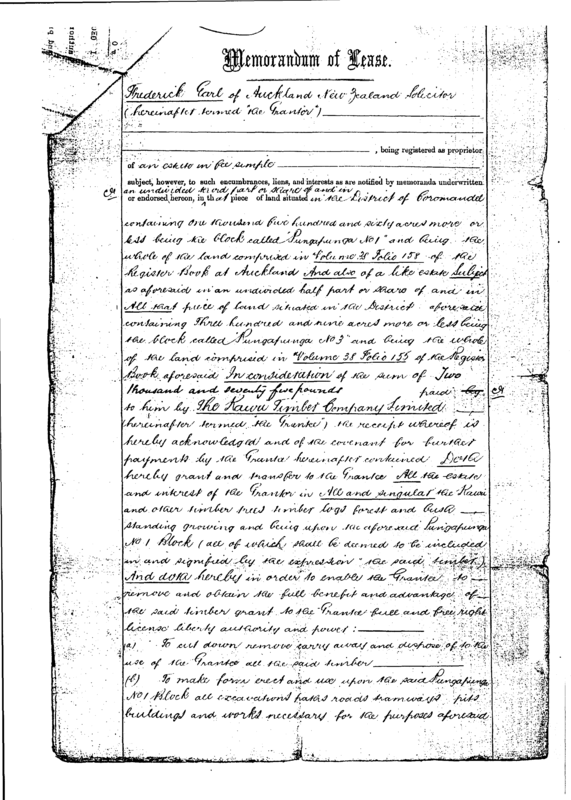 Memorandum of Lease.
Frederick Earl of Auckland New Zealand Solicitor
(hereinafter termed "the Grantor")
, being registered as proprietor
of an estate in fee simple
subject, however, to such encumbrances, liens, and interests as are notified by memoranda underwritten
an undivided part or share of and in
or endorsed hereon, in that piece of land situated in the District of Coromandel
containing one thousand five hundred and sixty acres more or
less being the block called "Pungapunga No 1" and being the
whole of the land comprised in Volume 38 Folio 158 of the
Register Book at Auckland And also of a like estate Subject
as aforesaid in an undivided half part or share of and in
All that piece of land situated in the District aforesaid
containing Three hundred and nine acres more or less being
the block called "Pungapunga No 3" and being the whole
of the land comprised in Volume 38 Folio 155 of the Register
Book aforesaid In consideration of the sum of Two
thousand and seventy five pounds paid
to him by The Kauri Timber Company Limited
(hereinafter termed "the Grantee") the receipt whereof is
hereby acknowledged and of the covenant for further
payments by the Grantee hereinafter contained Doth
hereby grant and transfer to the Grantee All the estate
and interest of the Grantor in All and singular the Kauri
and other timber trees timber logs forest and bush
standing growing and being upon the aforesaid Pungapunga
No 1 Block (all of which shall be deemed to be included
in and signified by the expression "the said timber")
And doth hereby in order to enable the Grantee to
remove and obtain the full benefit and advantage of
the said timber grant to the Grantee full and free right
license liberty authority and power :
(a) To cut down remove carry away and dispose of to the
use of the Grantee all the said timber
(b) To make form erect and use upon the said Pungapunga
No 1 Block all excavations paths roads tramways pits
buildings and works necessary for the purposes aforesaid